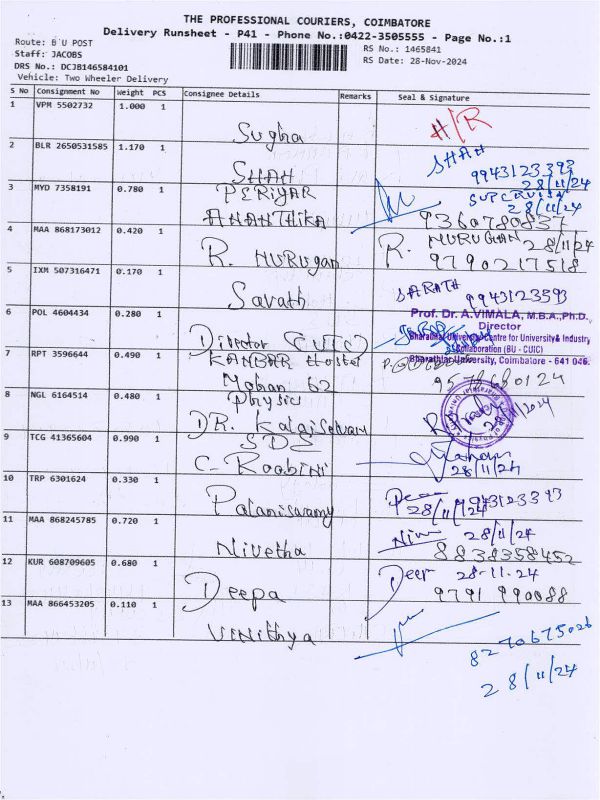 THE PROFESSIONAL COURIERS, COIMBATORE
Delivery Runsheet - P41 - Phone No.:0422-3505555 - Page No.:1
Route: B U POST
RS No.: 1465841
Staff: JACOBS
RS Date: 28-Nov-2024
DRS No.: DCJB146584101
Vehicle: Two Wheeler Delivery
S No Consignment No Weight PCS Consignee Details Remarks Seal & Signature
1 VPM 5502732 1.000 1 Sugha H/R
2 BLR 2650531585 1.170 1 SHAH SHAH
9943123393
28/11/24
3 MYD 7358191 0.780 1 PERIYAR
28/11/24
ANANTHIKA 9360780837
4 MAA 868173012 0.420 1 R. MURUgan R. MURUGAN 28/11/24
9790217518
5 IXM 507316471 0.170 1 Sarath SARATH 9943123593
6 POL 4604434 0.280 1 Director (CUIC)
Prof. Dr. A.VIMALA, M.B.A.,Ph.D.,
Director
Bharathiar University Centre for University& Industry
Collaboration (BU - CUIC)
Bharathiar University, Coimbatore - 641 046.
7 RPT 3596644 0.490 1 Hostel
Mohan 62
8 NGL 6164514 0.480 1 Physics
DR. Kalaiselvan
9 TCG 41365604 0.990 1 SDE
C- Roobini
28/11/24
10 TRP 6301624 0.330 1 Palaniswamy
28/11/24
11 MAA 868245785 0.720 1 Nivetha Niv 28/11/24
8838358452
12 KUR 608709605 0.680 1 Deepa Deep 28-11-24
9791 990088
13 MAA 866453205 0.110 1 VINithya
8270675026
28/11/24